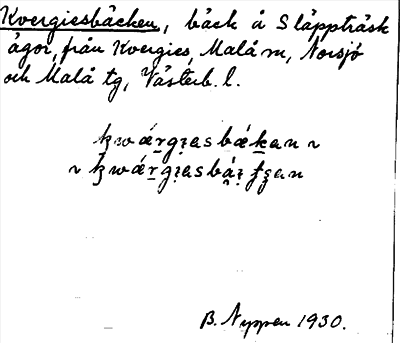 Kvergiesbäcken, bäck å Släppträsk
ägor, från Kvergies, Malå sn, Norsjö
och Malå tg, Västerb. l.
ꝁwǽrgɩasbǽkan ~
~ ꝁwǽrgɩasbá̤ɩ ʄʒan
B. Nyppen 1930.